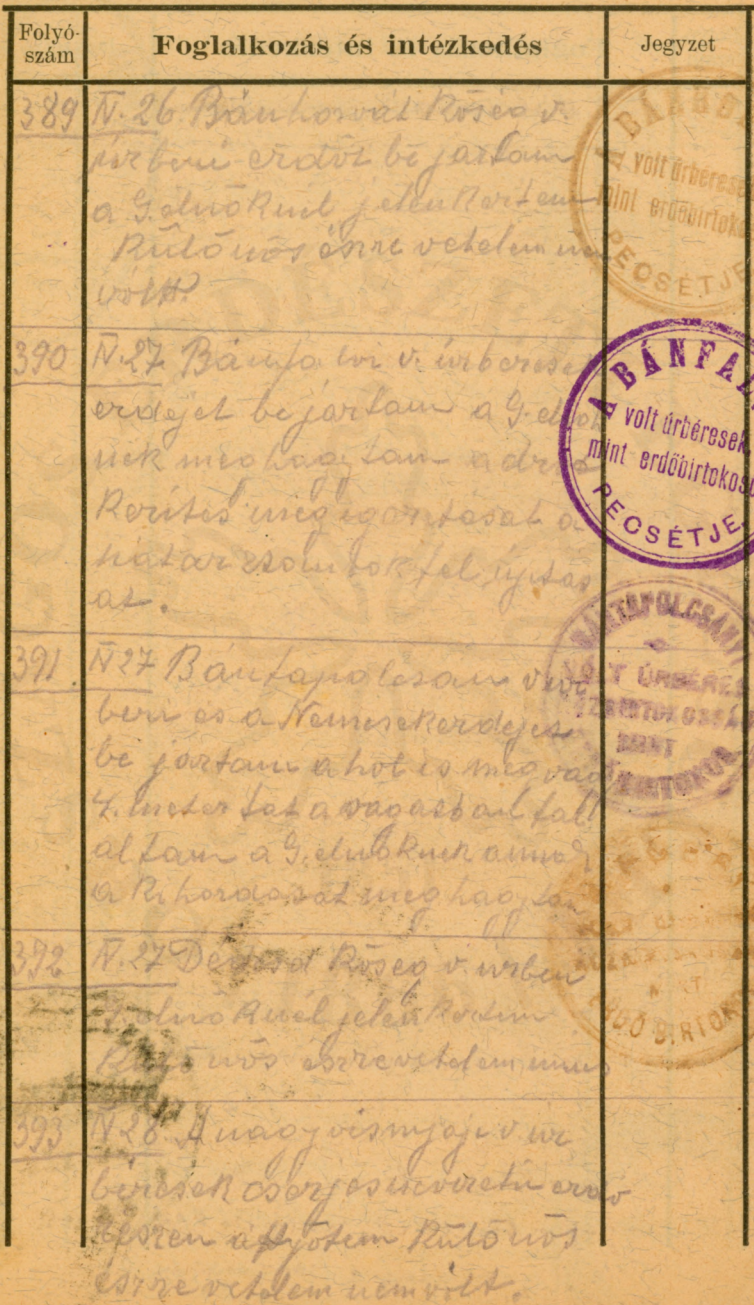 Folyó-
szám
Foglalkozás és intézkedés
Jegyzet
389 IV. 26 Bánhorvát Község v.
úrberi erdőt bé jartam
a G. elnöknél jelenkertem
Külőnös észre vetelem nem
vólt.
A BÁNHO
volt úrbéresek
mint erdőbirtokos
PECSÉTJE
390 IV. 27 v. úrbéresek
erdejét bé jartam a G. elnök
nek meghagytam a drót
Kerítés megigazitását a
határ csomók fel ujitás
at.
A BÁNFAL
volt úrbéresek,
mint erdőbirtokos
PECSÉTJE
391 IV 27 Bántapolcsán v. úr
beri és a Nemesek erdejét
bé jartam a hol is meg vag
4. meter fat a vágásbail tal
altam a G. elnöknek annak
a Ki hordását meghagytam
BÁNTAPOLCSÁNYI
VOLT ÚRBÉRES
MINT
392 IV. 27 Dédesd Község v. úrben
elnöknél jelenkertem
Külőnös észrevetelem nem
ERDŐBIRTOKOS
393 IV 28 A nagyvisnyoji v úr
béresek cserjes nevezetű erdő
részen Külőnös
észrevetelem nem vólt.